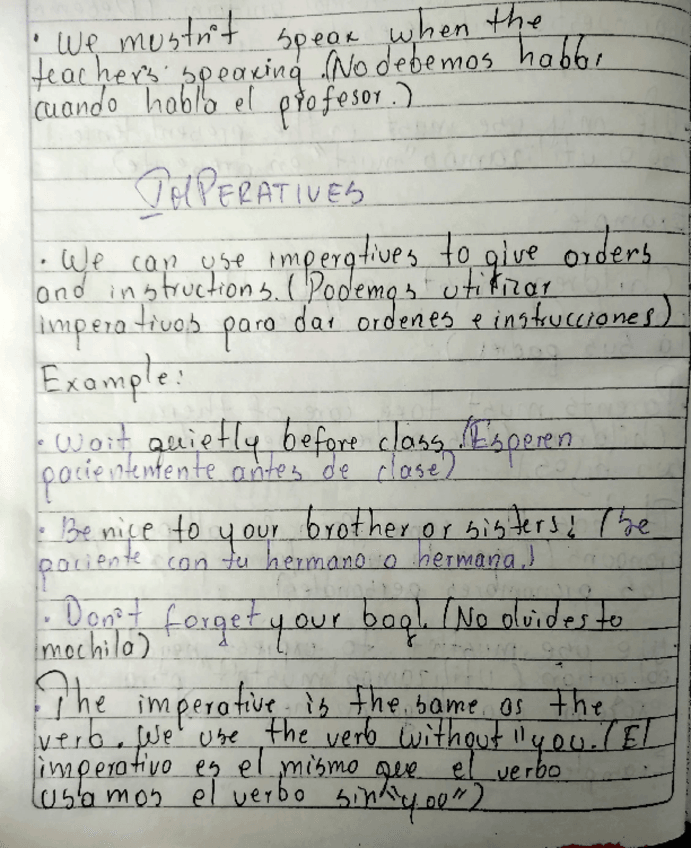 · We mustn't speak when the
teacher's speaking. (No debemos hablar
cuando habla el profesor.)
IMPERATIVES
· We can use imperatives to give orders
and instructions. (Podemos utilizar
imperativos para dar ordenes e instrucciones)
Example:
· Wait quietly before class. (Esperen
pacientemente antes de clase)
· Be nice to your brother or sisters! (Se
paciente con tu hermano o hermana.)
· Don't forget your bag!. (No olvides tu
mochila)
· The imperative is the same as the
verb. We use the verb without "you. (El
imperativo es el mismo que el verbo
usamos el verbo sin "you")